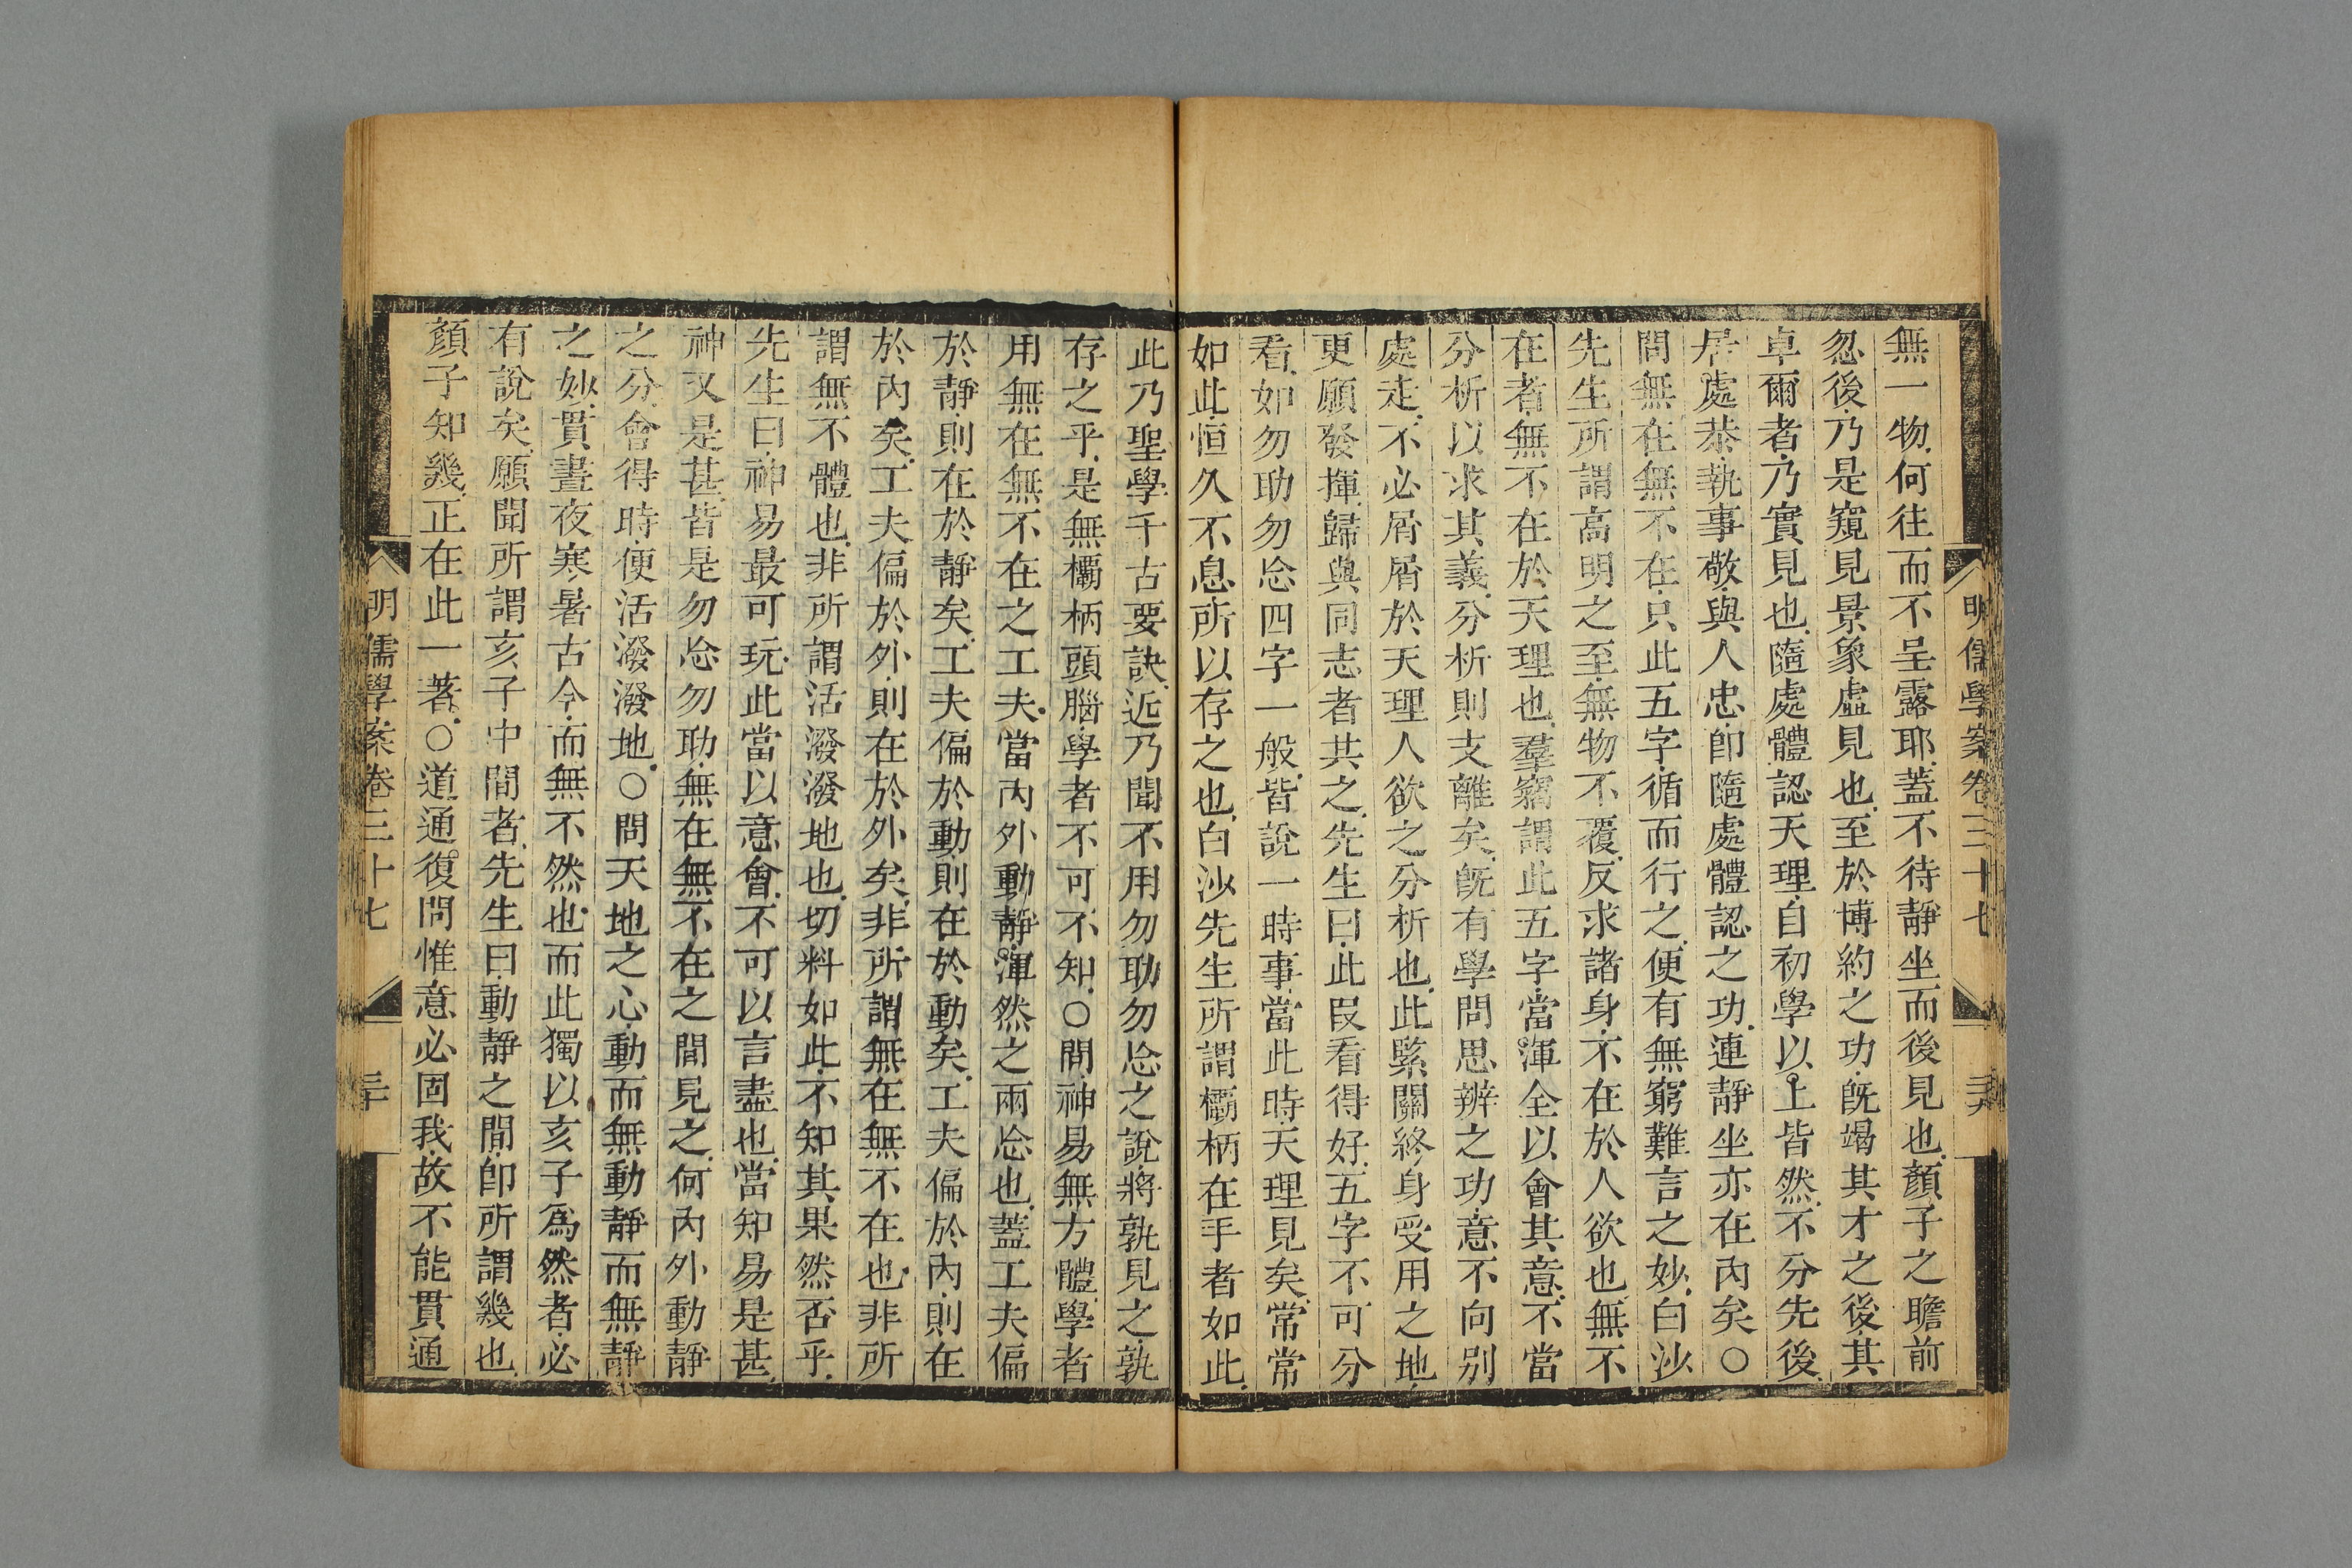 明儒學案卷三十七
無一物何往而不呈露耶蓋不待靜坐而後見也顏子之瞻前
忽後乃是窺見景象虛見也至於博約之功旣竭其才之後其
卓爾者乃實見也隨處體認天理自初學以上皆然不分先後
居處恭執事敬與人忠卽隨處體認之功連靜坐亦在內矣○
問無在無不在只此五字循而行之便有無窮難言之妙白沙
先生所謂高明之至無物不覆反求諸身不在於人欲也無不
在者無不在於天理也羣竊謂此五字當渾全以會其意不當
分析以求其義分析則支離矣旣有學問思辨之功意不向别
處走不必屑屑於天理人欲之分析也此緊關終身受用之地
更願發揮歸與同志者共之先生曰此段看得好五字不可分
看如勿助勿忘四字一般皆說一時事當此時天理見矣常常
如此恒久不息所以存之也白沙先生所謂欛柄在手者如此
此乃聖學千古要訣近乃聞不用勿助勿忘之說將孰見之孰
存之乎是無欛柄頭腦學者不可不知○問神易無方體學者
用無在無不在之工夫當內外動靜渾然之兩忘也蓋工夫偏
於靜則在於靜矣工夫偏於動則在於動矣工夫偏於內則在
於內矣工夫偏於外則在於外矣非所謂無在無不在也非所
謂無不體也非所謂活潑潑地也切料如此不知其果然否乎
先生曰神易最可玩此當以意會不可以言盡也當知易是甚
神又是甚皆是勿忘勿助無在無不在之間見之何內外動靜
之分會得時便活潑潑地○問天地之心動而無動靜而無靜
之妙貫晝夜寒暑古今而無不然也而此獨以亥子爲然者必
有說矣願聞所謂亥子中間者先生曰動靜之間卽所謂幾也
顏子知幾正在此一著○道通復問惟意必固我故不能貫通
明儒學案卷三十七